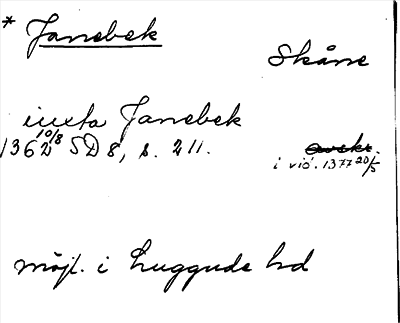 * Janebek
Skåne
iuxta Janebek
1362 10/8 SD 8, s. 211.
avskr.
i vid. 1377 20/5
möjl. i Luggude hd